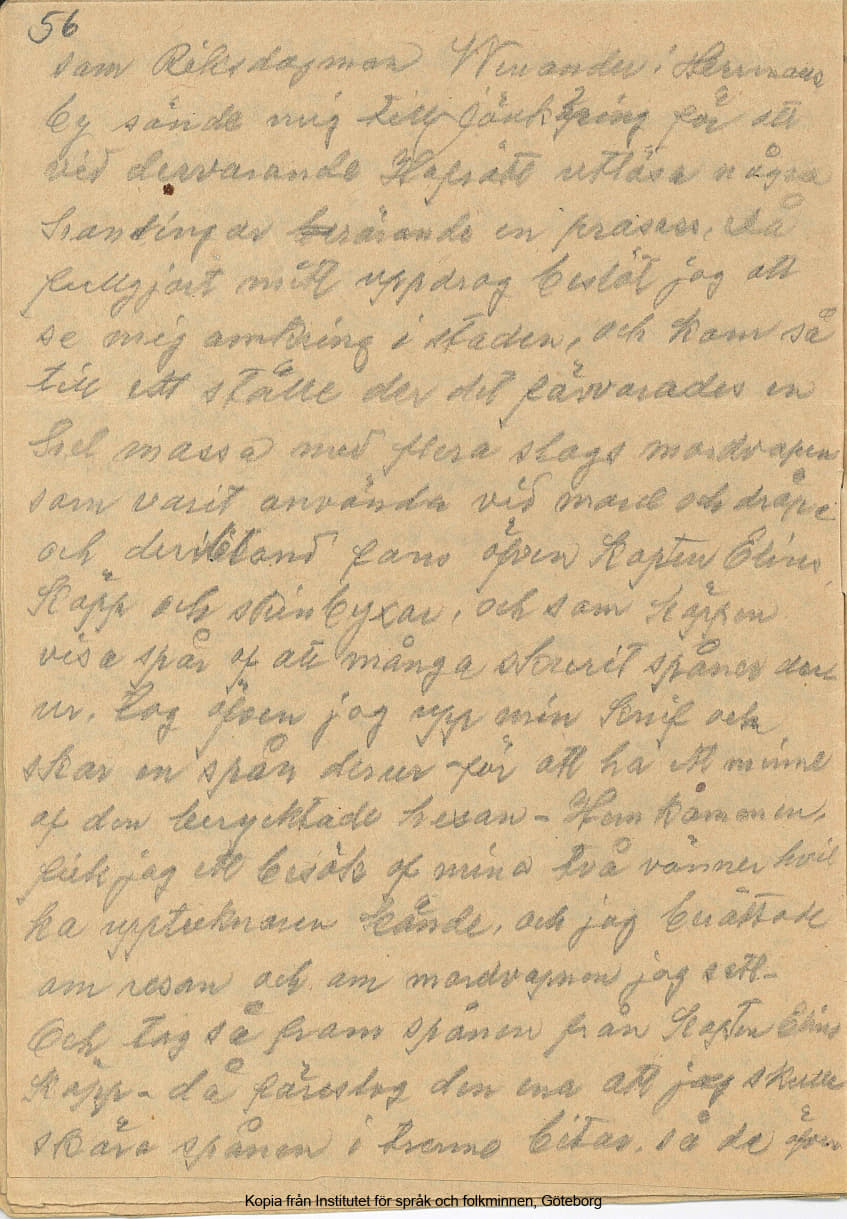 56
som Riksdagman Winander i Hermans
by sände mig till Jönköping för att
vid dervarande Hofrätt utlösa några
handlingar berörande en prosess, då
fullgjort mitt uppdrag beslöt jag att
se mig omkring i staden, och kom så
till ett ställe der det förvarades en
hel massa med flera slags mordvapen
som varit använda vid mord och dråp
och deribland fans äfven Kapten Elins
Käpp och skinbyxor, och som käppen
visa spår af att många skurit spånor der
ur, tog äfven jag upp min knif och
skar en spån derur för att ha ett minne
af den beryktade hexan - Hemkommen,
fick jag ett besök af mina två vänner hvil
ka upptecknaren kände, och jag berättade
om resan och om mordvapnen jag sett-
Och tog så fram spånen från Kapten Elins
Käpp - då föreslog den ena att jag skulle
skära spånen i trenne bitar, så de äfven
Kopia från Institutet för språk och folkminnen, Göteborg